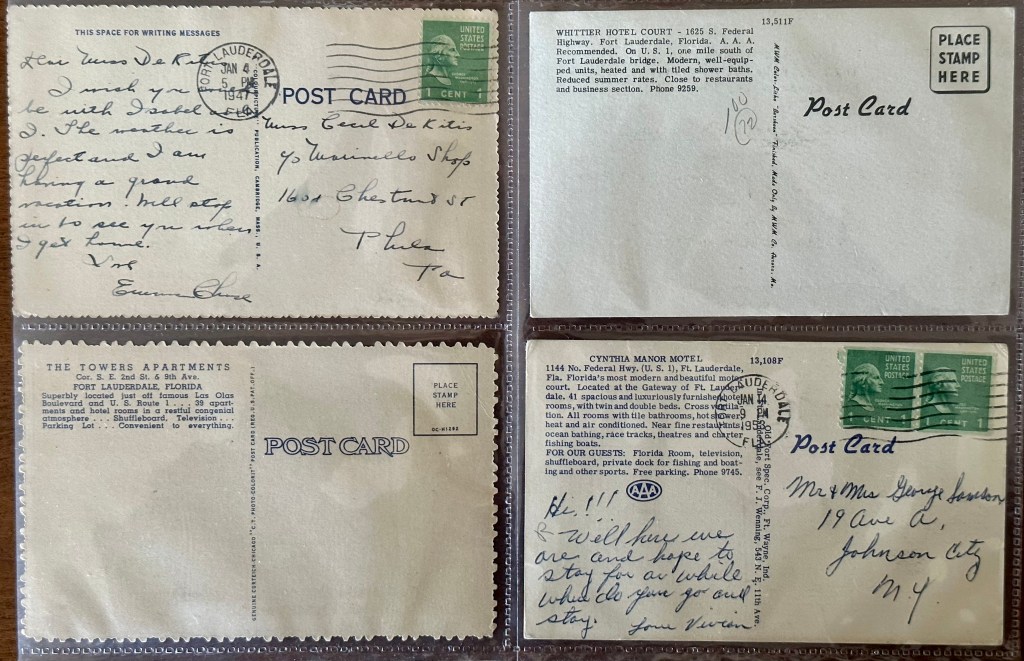 THIS SPACE FOR WRITING MESSAGES
Dear Miss De Kitis
I wish you
be with Isabel
I. The weather is
perfect and I am
having a grand
vacation. Will stop
in to see you when
I get home.
Love
FORT LAUDERDALE
JAN 4
5 PM
1947
FLA
UNITED
STATES
POSTAGE
1 CENT 1
POST CARD
PUBLICATION, CAMBRIDGE, MASS., U. S. A.
Miss Cecil De Kitis
c/o Marinello Shop
1601 Chestnut St
Phila
Pa
13,511F
WHITTIER HOTEL COURT - 1625 S. Federal
Highway. Fort Lauderdale, Florida. A. A. A.
Recommended. On U. S. 1, one mile south of
Fort Lauderdale bridge. Modern, well-equip-
ped units, heated and with tiled shower baths.
Reduced summer rates. Close to restaurants
and business section. Phone 9259.
100
72
PLACE
STAMP
HERE
Post Card
MWM Color-Litho Finished, Made Only By MWM Co. Aurora, Mo.
THE TOWERS APARTMENTS
Cor. S. E. 2nd St. & 9th Ave.
FORT LAUDERDALE, FLORIDA
Superbly located just off famous Las Olas
Boulevard and U. S. Route 1 . . . . 39 apart-
ments and hotel rooms in a restful congenial
atmosphere . . . Shuffleboard, Television . .
Parking Lot . . . Convenient to everything.
PLACE
STAMP
HERE
DC-H1292
POST CARD
GENUINE CURTEICH-CHICAGO "C.T. PHOTO-COLORIT" POST CARD (REG. U.S. PAT. OFF.)
CYNTHIA MANOR MOTEL
13,108F
1144 No. Federal Hwy. (U. S. 1), Ft. Lauderdale,
Fla. Florida's most modern and beautiful motor
court. Located at the Gateway of Ft. Lauder-
dale. 41 spacious and luxuriously furnished hotel
rooms, with twin and double beds. Cross ventila-
tion. All rooms with tile bathrooms, hot showers,
heat and air conditioned. Near fine restaurants,
ocean bathing, race tracks, theatres and charter
fishing boats.
FOR OUR GUESTS: Florida Room, television,
shuffleboard, private dock for fishing and boat-
ing and other sports. Free parking. Phone 9745.
AAA
Hi,!!!
Well here we
are and hope to
stay for a while
when do you go and
stay.
Love Vivian
LAUDERDALE
JAN 14
9 PM
195
FLA
UNITED
STATES
POSTAGE
1 CENT
UNITED
STATES
POSTAGE
CENT 1
Post Card
Spec. Corp., Ft. Wayne, Ind.
see F. J. Wenning, 543 N. E. 11th Ave.
Mr & Mrs George
19 Ave A,
Johnson City
N.Y.